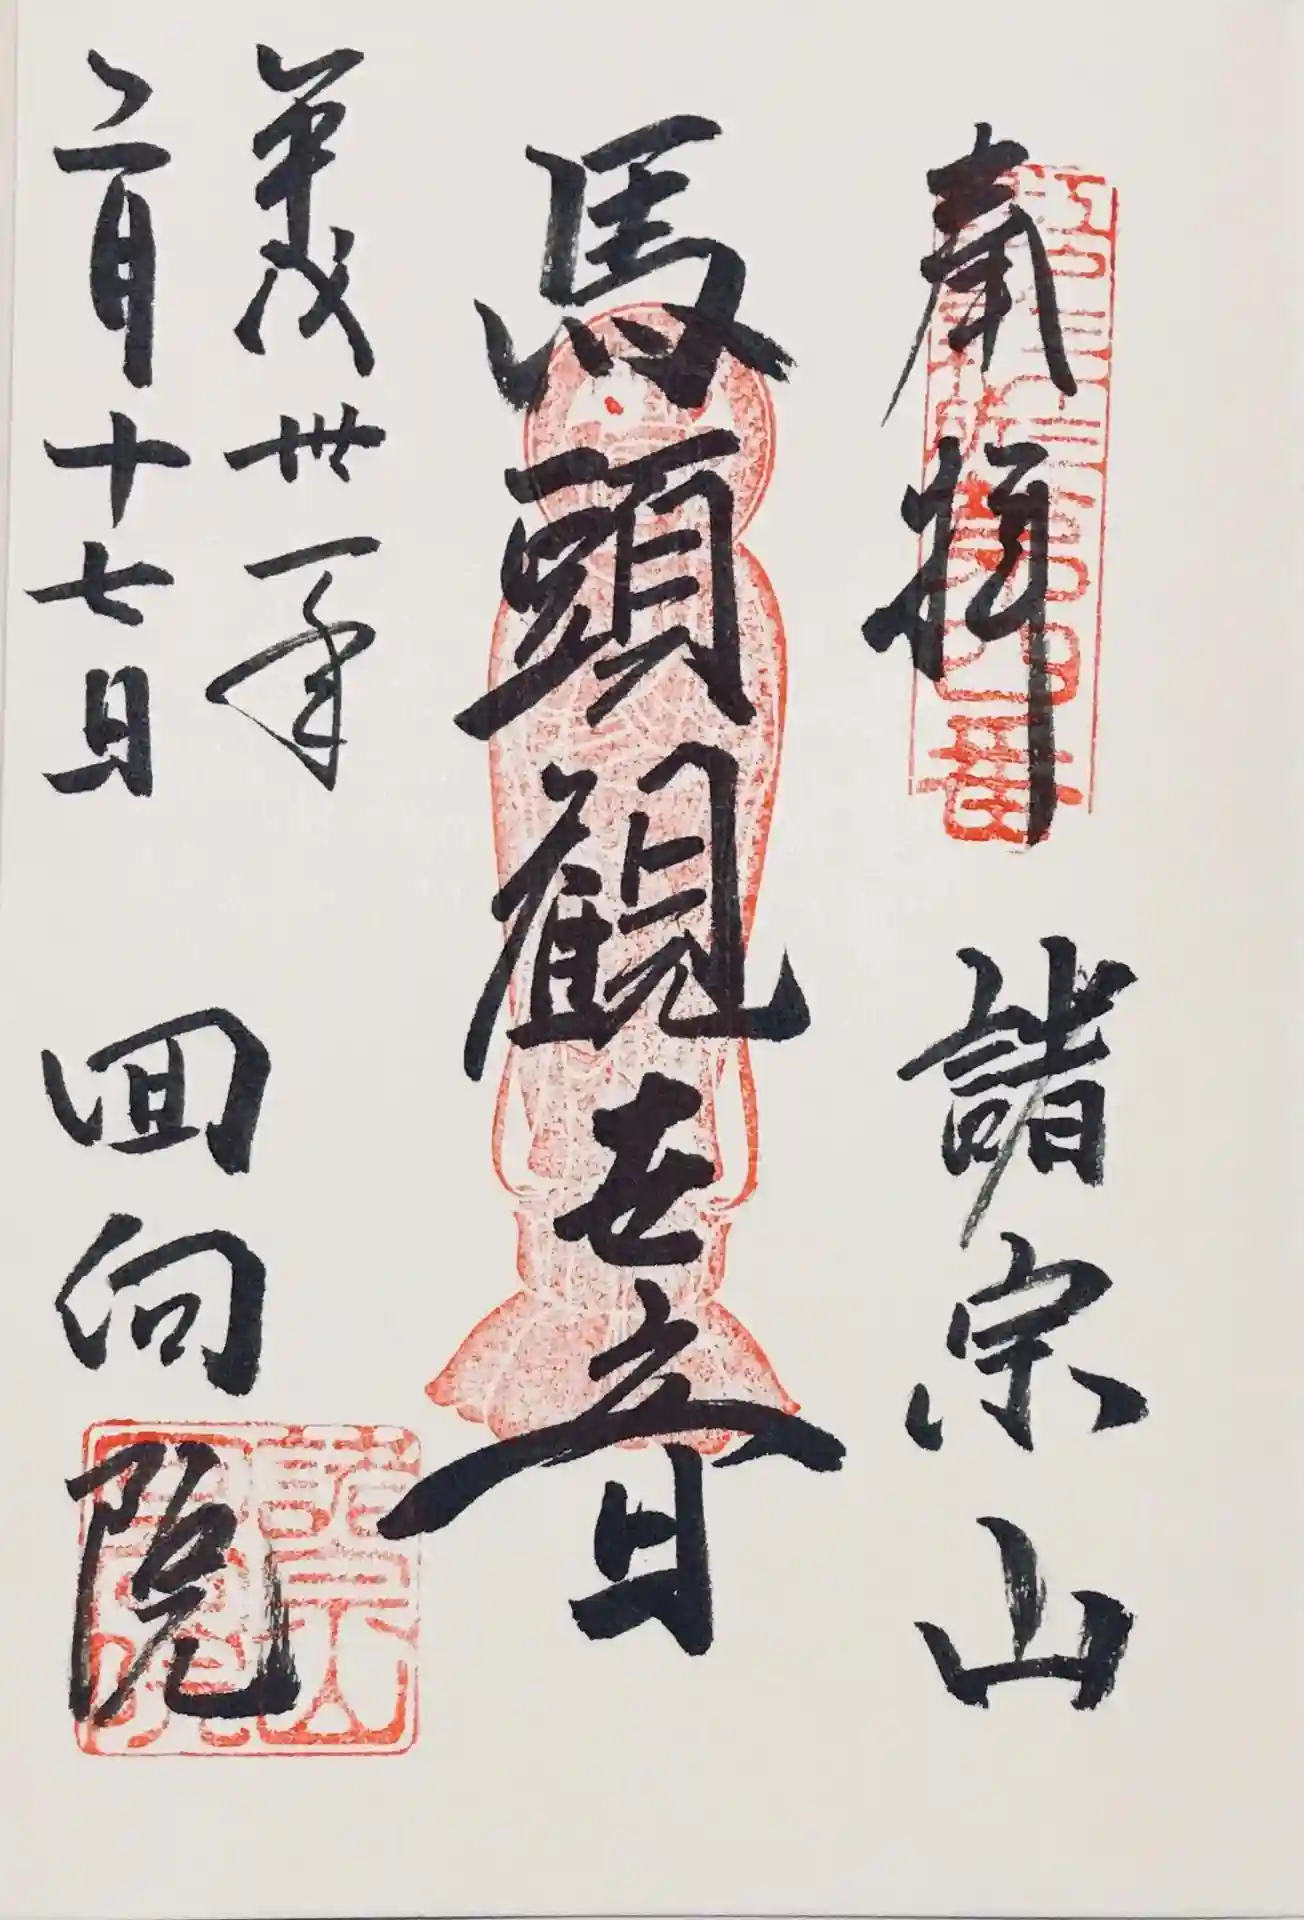 奉拝 諸宗山
馬頭観世音
平成卅一年
二月十七日 回向院